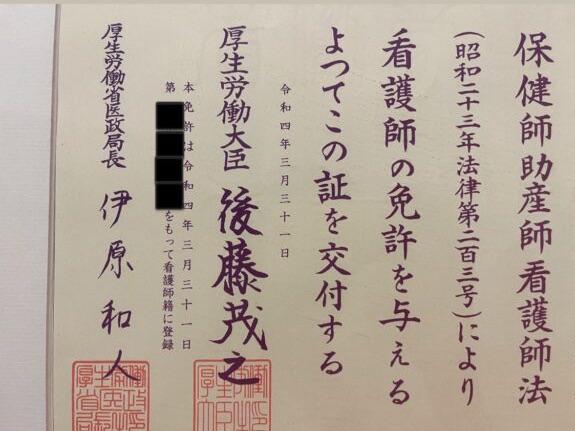 保健師助産師看護師法
(昭和二十三年法律第二百三号)により
看護師の免許を与える
よつてこの証を交付する
令和四年三月三十一日
厚生労働大臣 後藤茂之
本免許は令和四年三月三十一日
第 をもって看護師籍に登録
厚生労働省医政局長 伊原和人